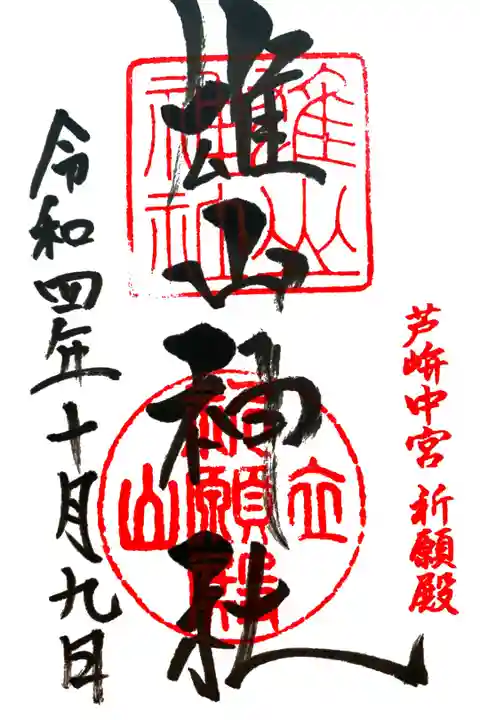 芦峅中宮 祈願殿
雄山神社
雄山
神社
立山
祈願殿
令和四年十月九日